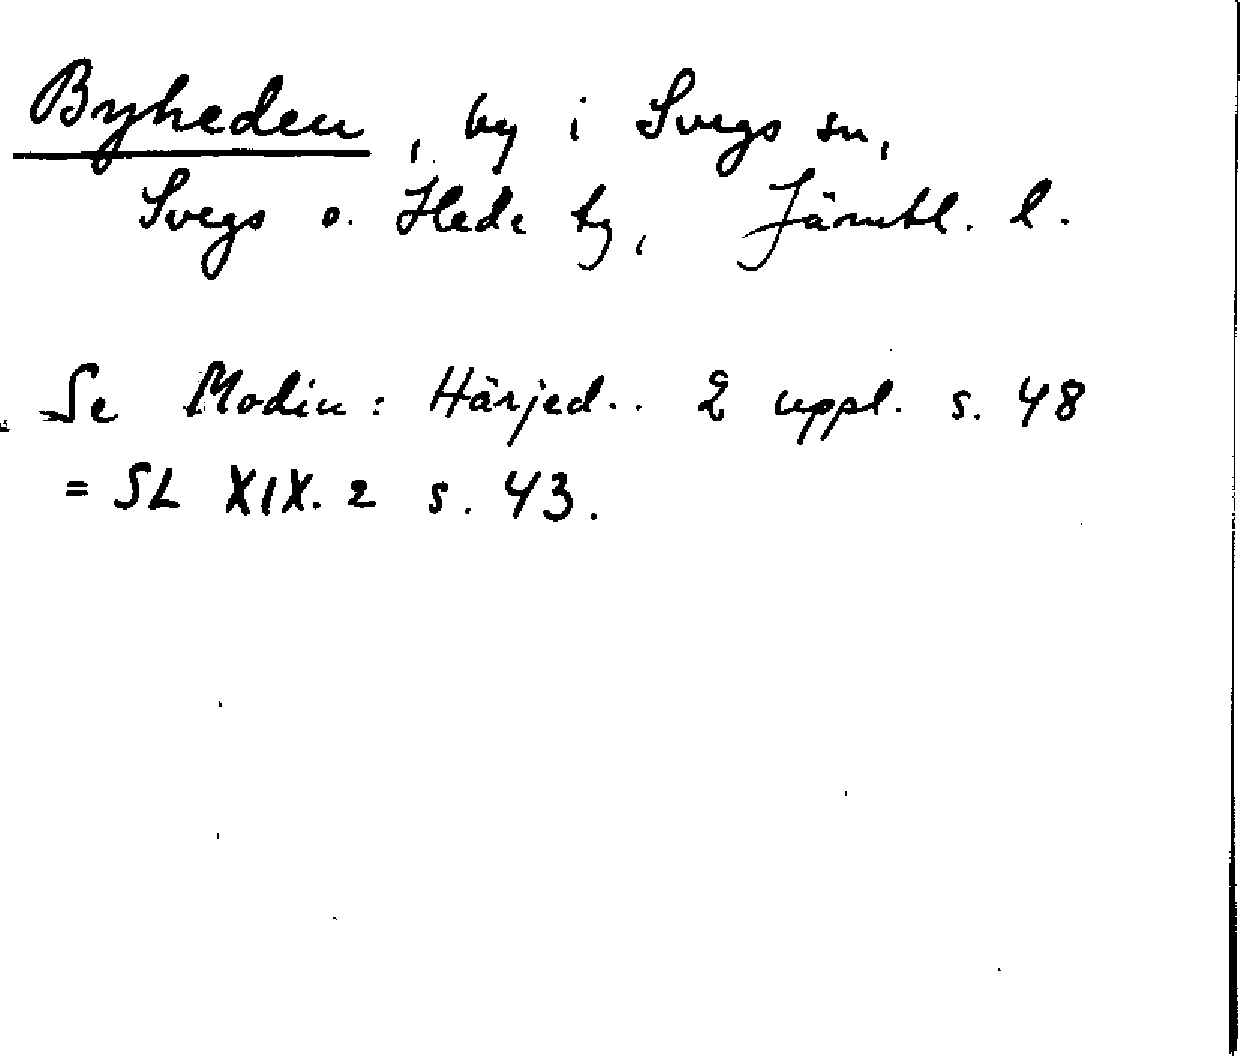 Byheden, by i Svegs sn,
Svegs o. Hede tg, Jämtl. l.
Se Modin: Härjed.. 2 uppl. s. 48
= SL XIX. 2 s. 43.